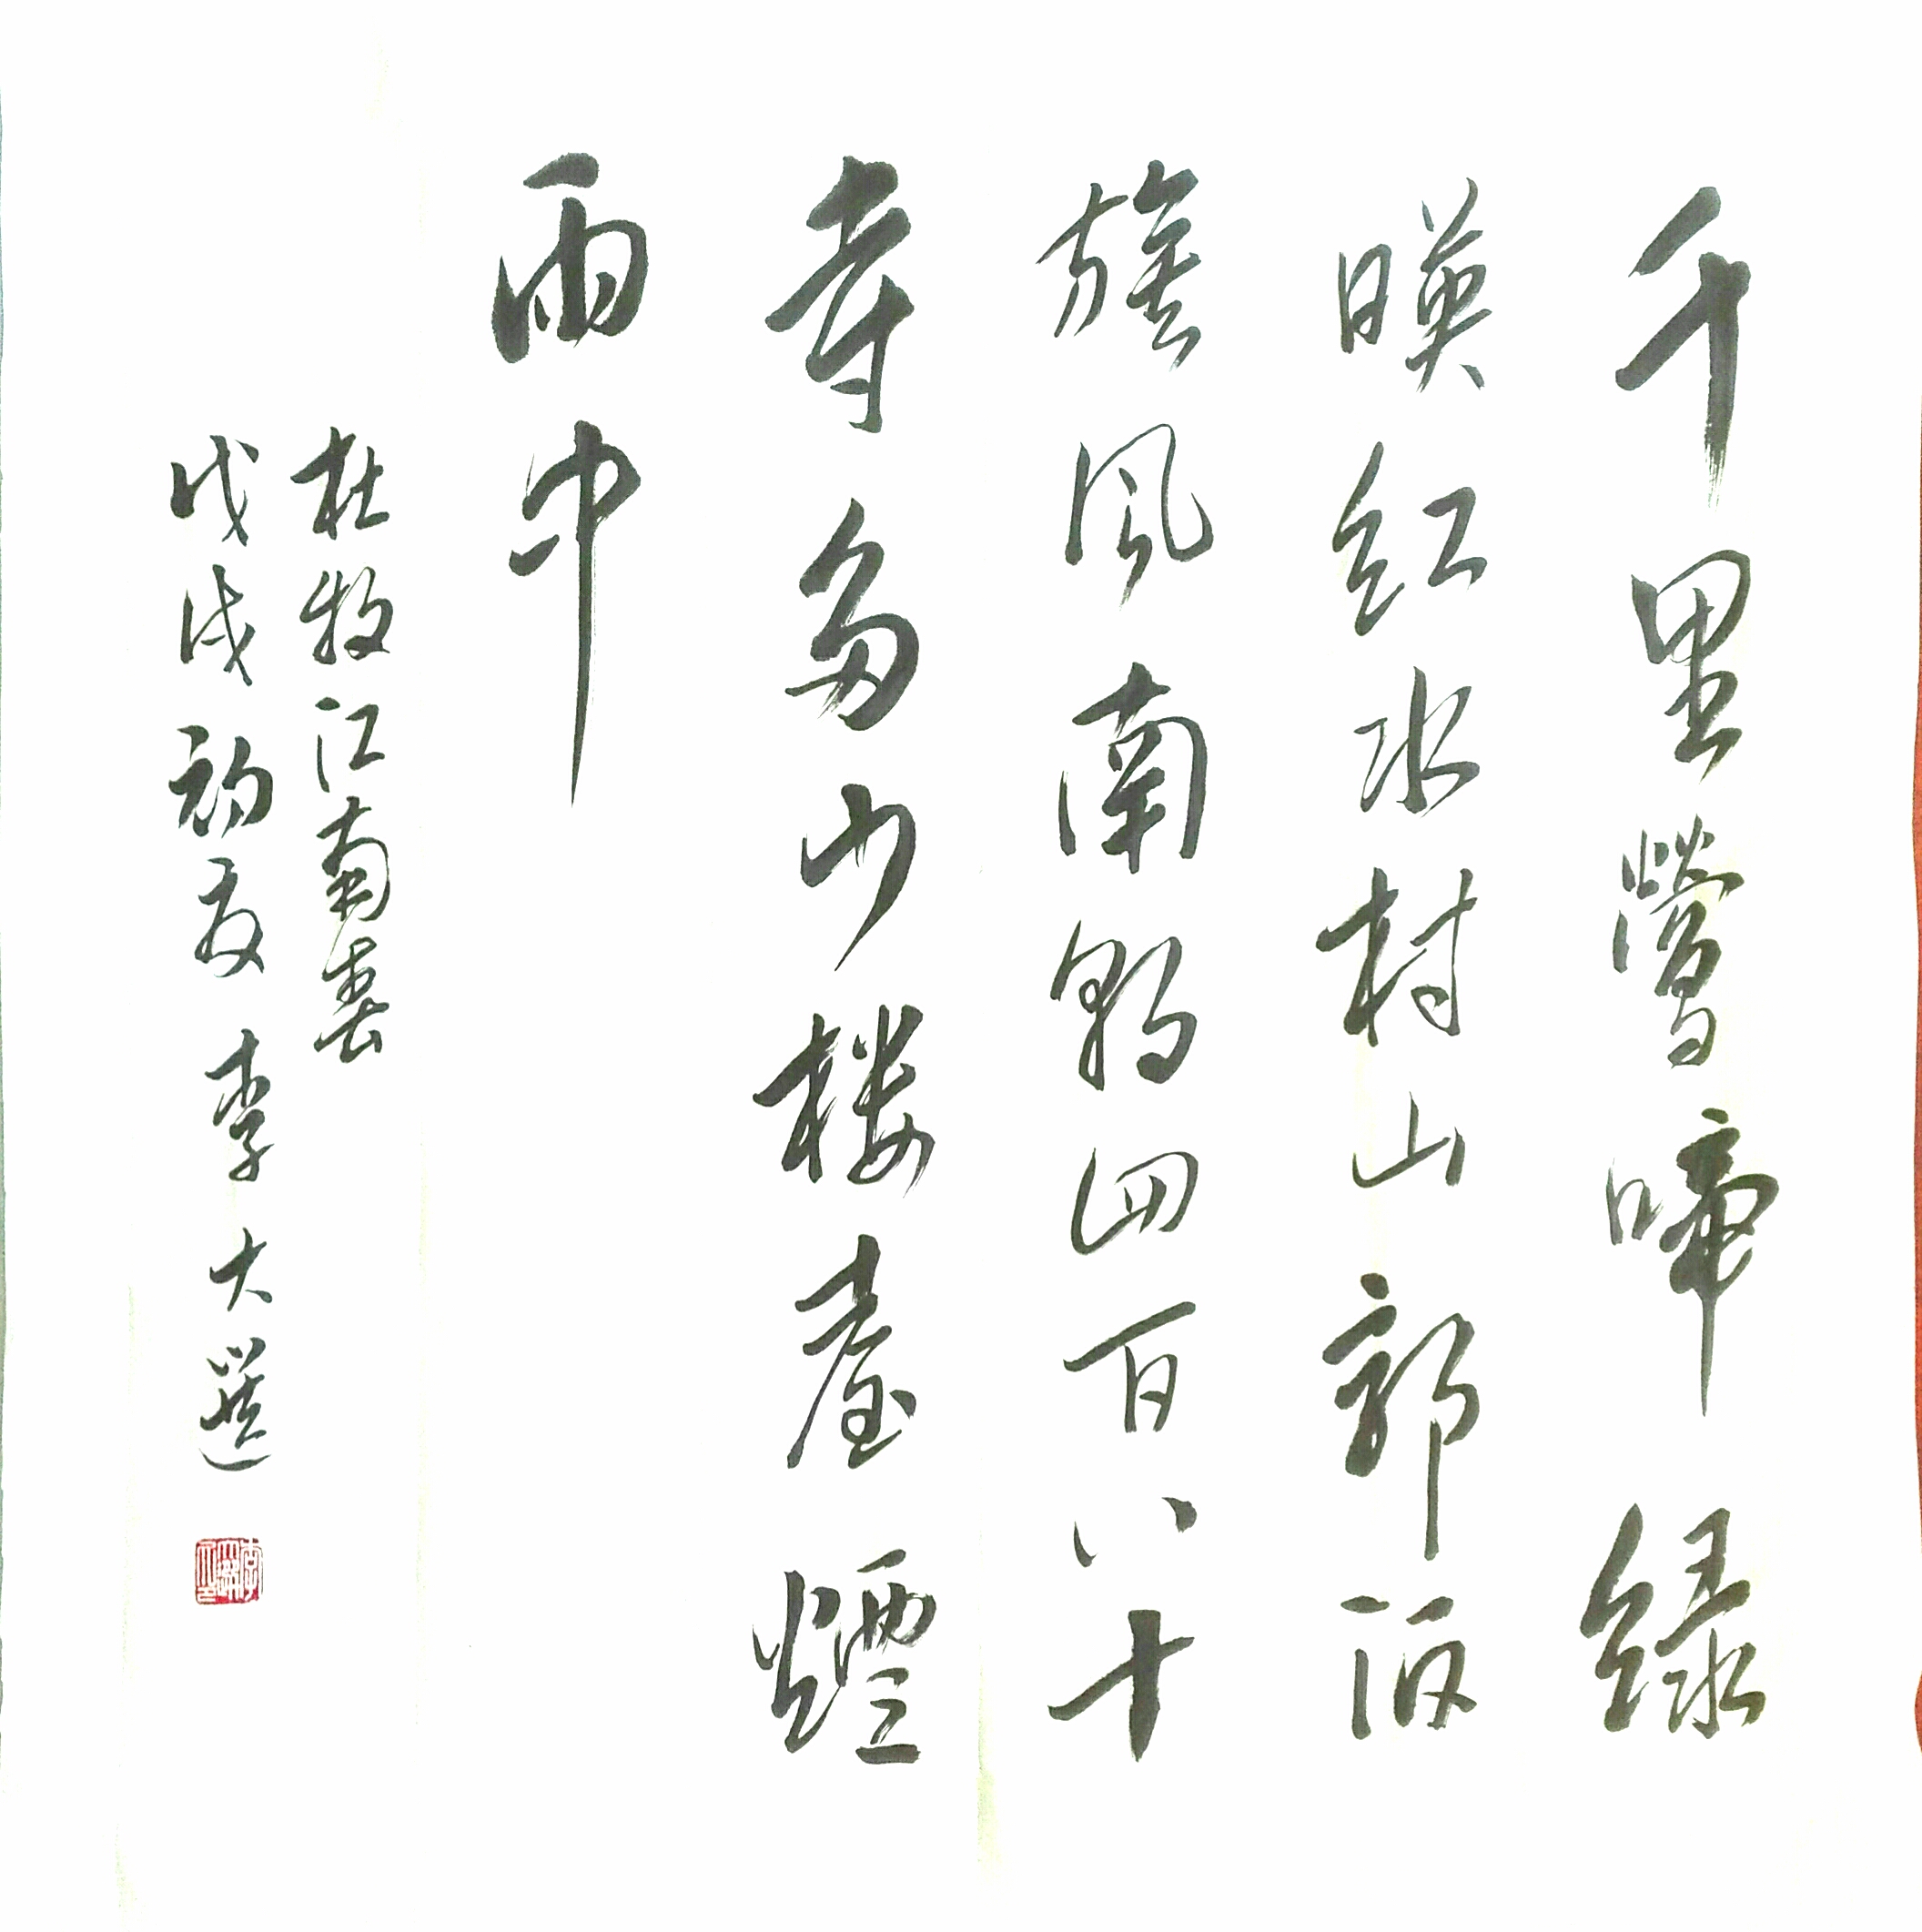 千里鶯啼緑
暎紅水村山郭酒
旗風南朝四百八十
寺多少楼臺煙
雨中
杜牧江南春
戊戌初夏 李大選